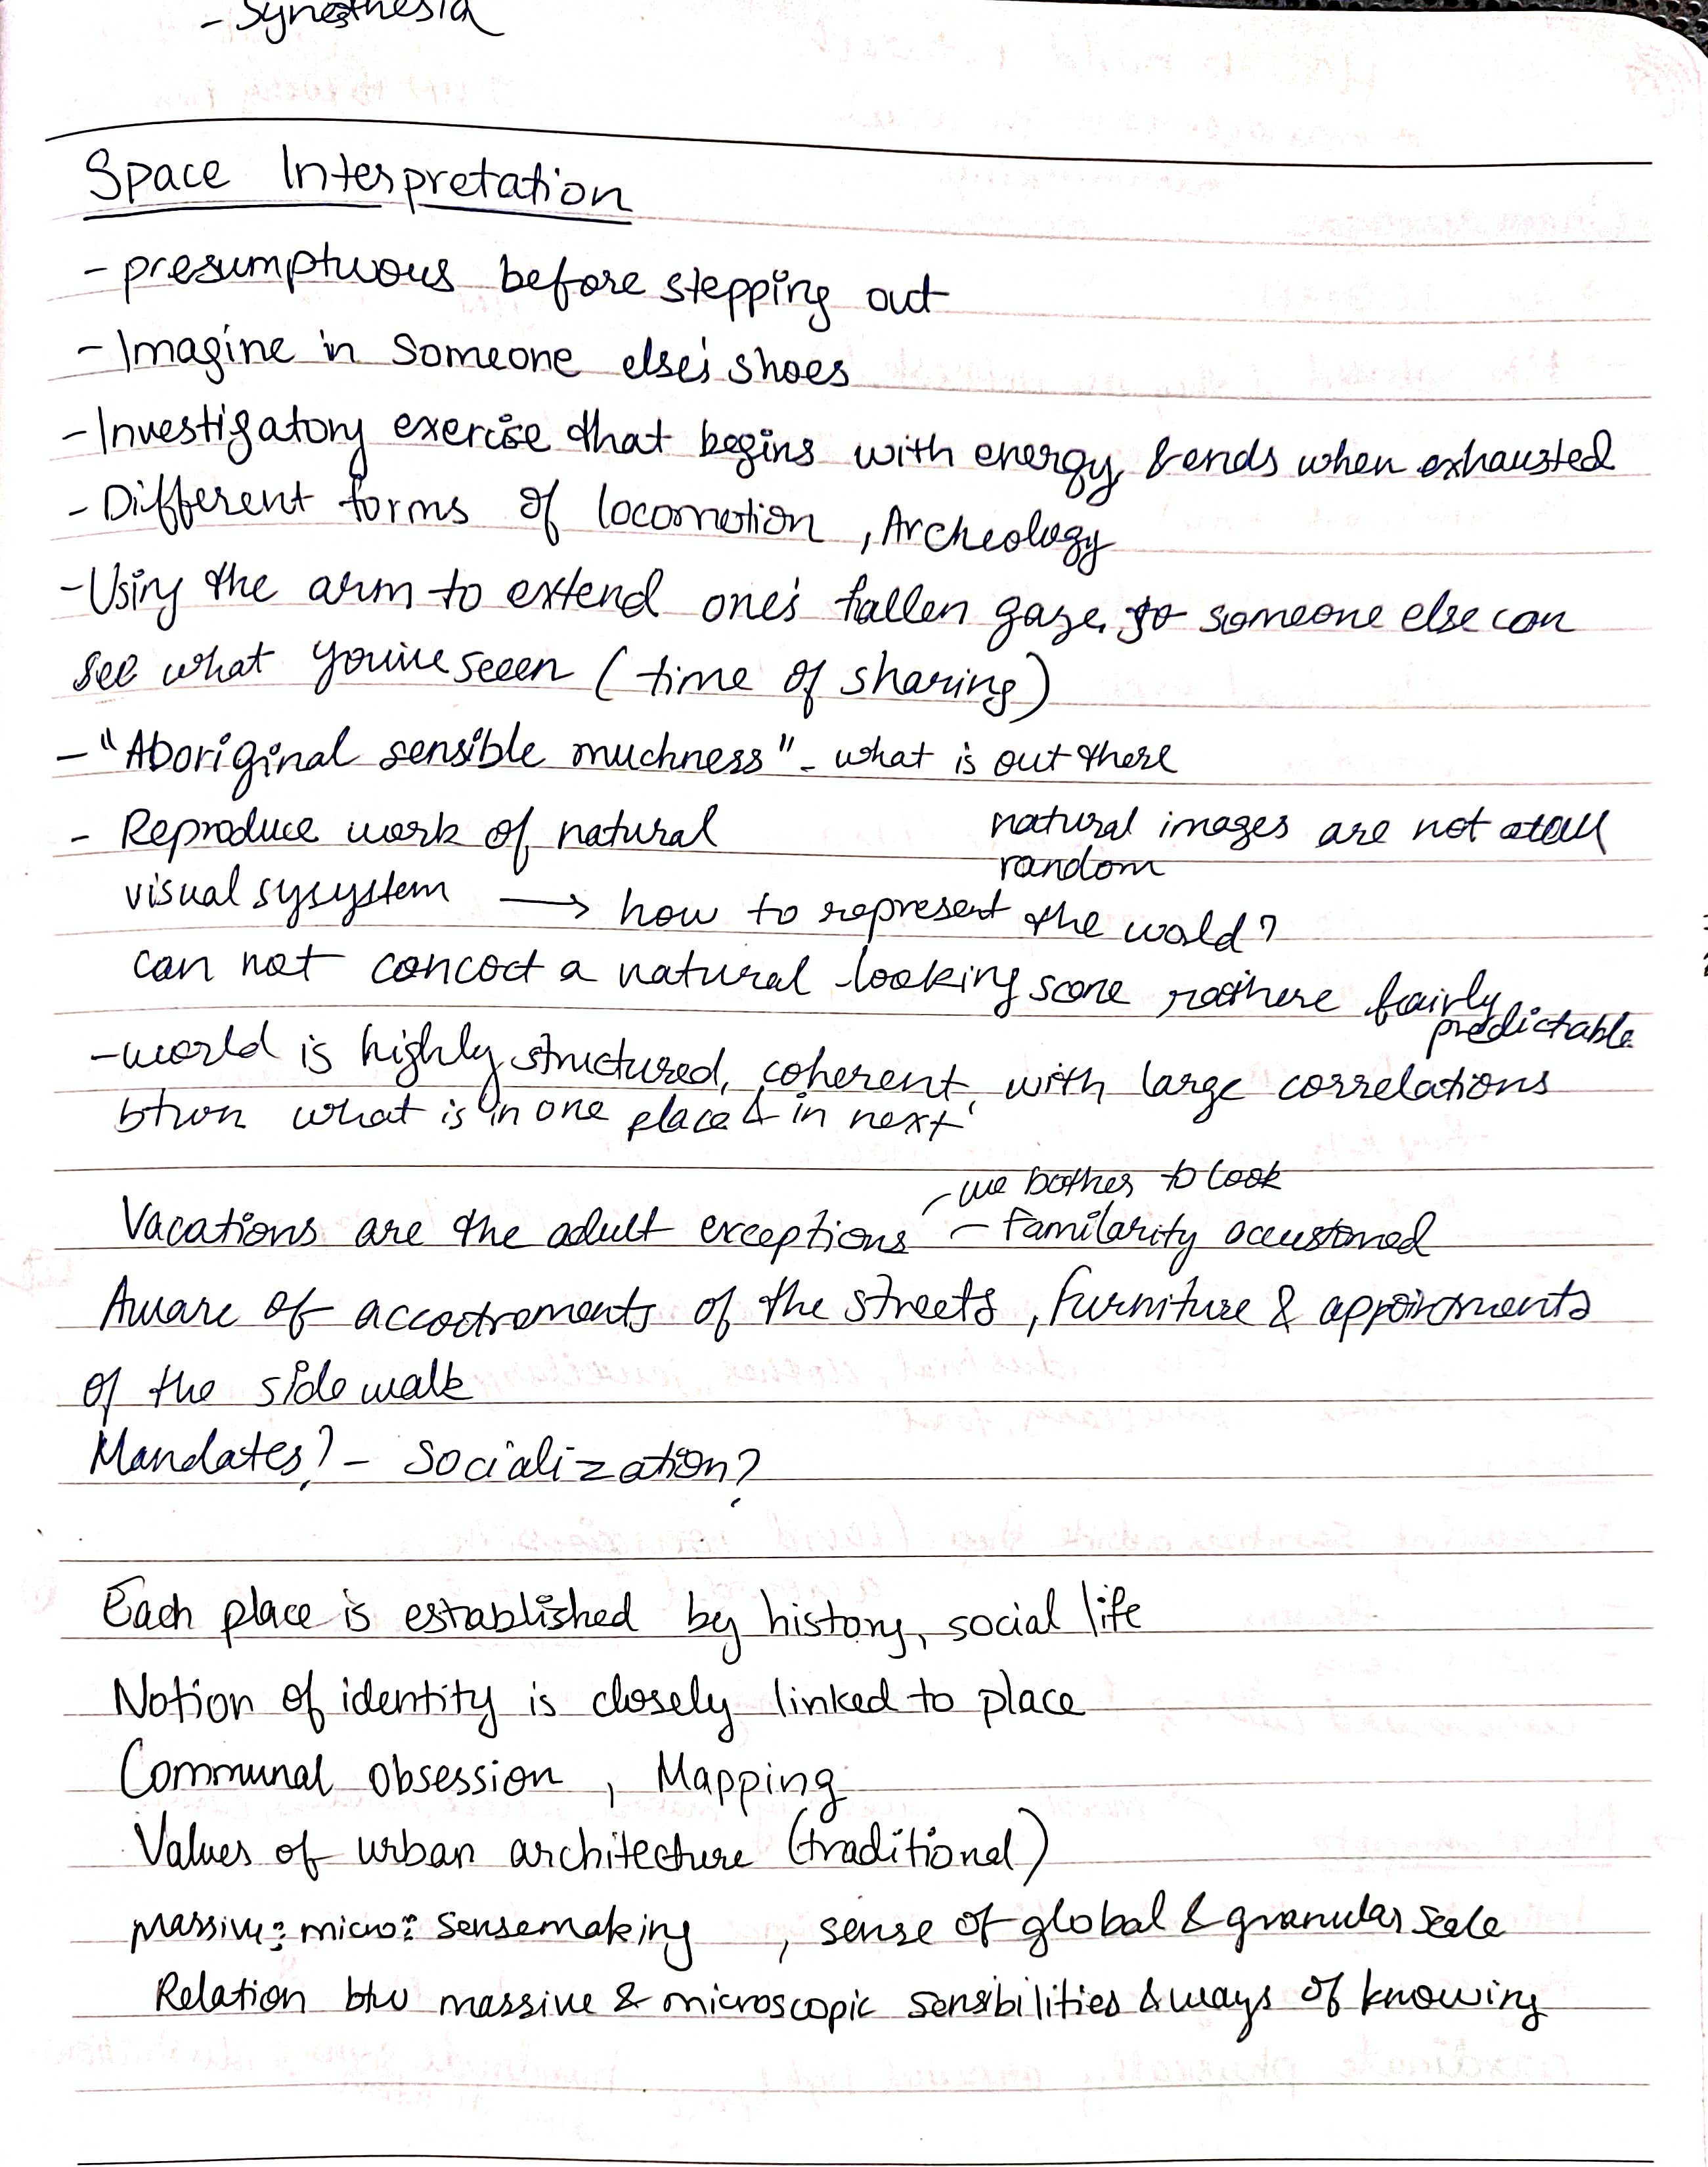 - Synesthesia
Space Interpretation
- presumptuous before stepping out
- Imagine in someone else's shoes
- Investigatory exercise that begins with energy & ends when exhausted
- Different forms of locomotion , Archeology
- Using the arm to extend one's fallen gaze, so someone else can
see what you've seeen (time of sharing)
- "Aboriginal sensible muchness" - what is out there
- Reproduce work of natural
natural images are not atall
random
visual sysystem → how to represent the world?
can not concoct a natural looking scene fairly
predictable
- world is highly structured, coherent, with large correlations
btwn what is in one place & in next
- we bother to look
Vacations are the adult exceptions - familarity accustomed
Aware of accoutrements of the streets, furniture &
of the sidewalk
Mandates? - Socialization?
Each place is established by history, social life
Notion of identity is closely linked to place
Communal obsession , Mapping
Values of urban architecture (traditional)
Massive: micro: sensemaking , sense of global & granular scale
Relation btw massive & microscopic sensibilities & ways of knowing